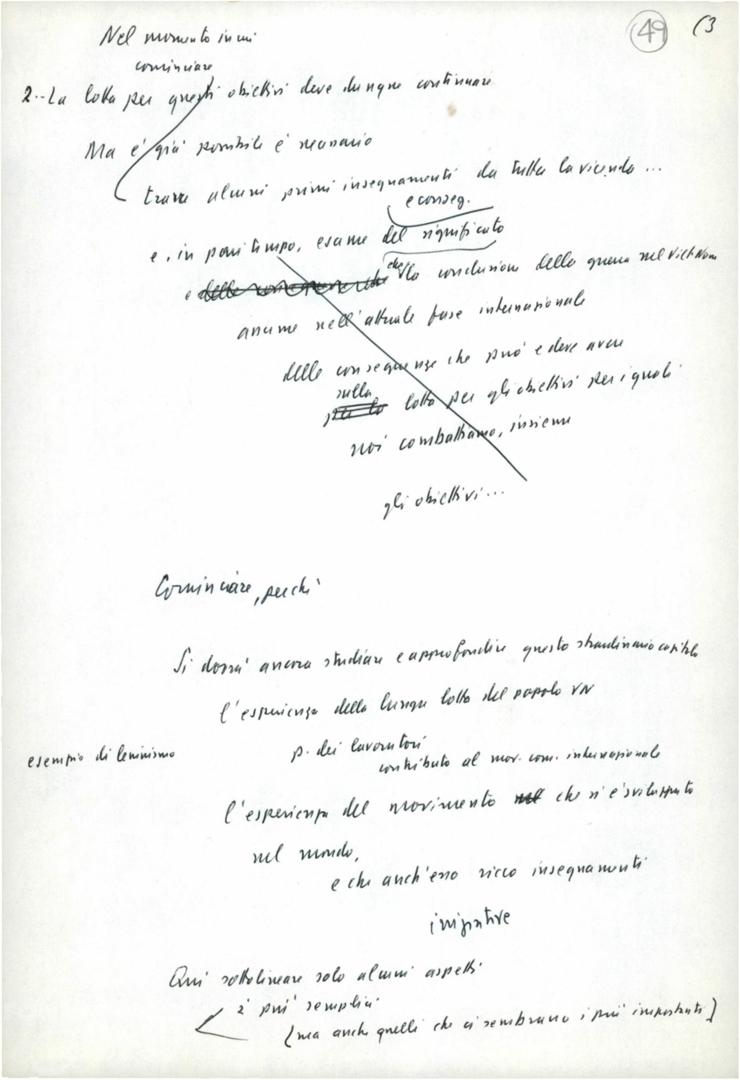 49 (3
Nel momento in cui
cominciare
2.- La lotta per questi obiettivi deve dunque continuare
Ma è già possibile è necessario
trarre alcuni primi insegnamenti da tutta la vicenda ...
e conseg.
e, in pari tempo, esame del significato
e delle conseguenze che
che la conclusione della guerra nel Viet Nam
assume nell'attuale fase internazionale
delle conseguenze che può e deve avere
sulla
per la lotta per gli obiettivi per i quali
noi combattiamo, insieme
gli obiettivi ...
Cominciare, perché
Si dovrà ancora studiare e approfondire questo straordinario capitolo
l'esperienza della lunga lotta del popolo VN
esempio di leninismo p. dei lavoratori
contributo al mov. com. internazionale
l'esperienza del movimento nel che si è sviluppato
nel mondo,
e che anch'esso ricco insegnamenti
iniziative
Qui sottolineare solo alcuni aspetti
i più semplici
(ma anche quelli che ci sembrano i più importanti)